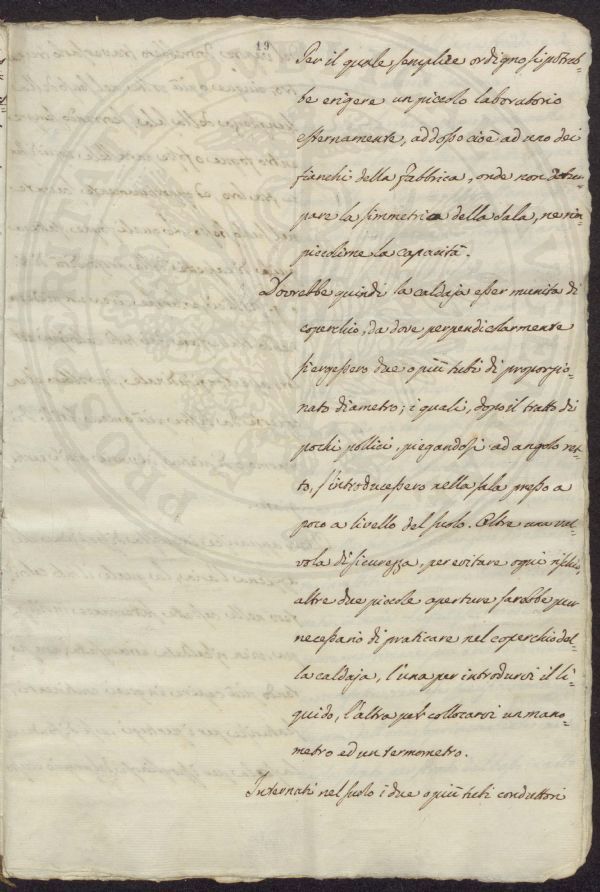 19
Per il quale semplice ordigno si potreb-
be erigere un piccolo laboratorio
esternamente, addosso cioè ad uno dei
fianchi della fabbrica, onde non
pare la simmetrica della Sala, ne rim-
picciolirne la capacità.
Dovrebbe quindi la caldaja esser munita di
coperchio, da dove perpendicolarmente
s'ergessero due o più tubi di proporzio-
nato diametro; i quali, dopo il tratto di
pochi pollici, piegandosi ad angolo ret-
to, s'introducessero nella sala presso a
poco a livello del suolo. Oltre una val-
vola di sicurezza, per evitare ogni rischio,
altre due piccole aperture sarebbe pur
necessario di praticare nel coperchio del-
la caldaja, l'una per introdurvi il li-
quido, l'altra per collocarvi un mano-
metro ed un termometro.
Internati nel suolo i due o più tubi conduttori